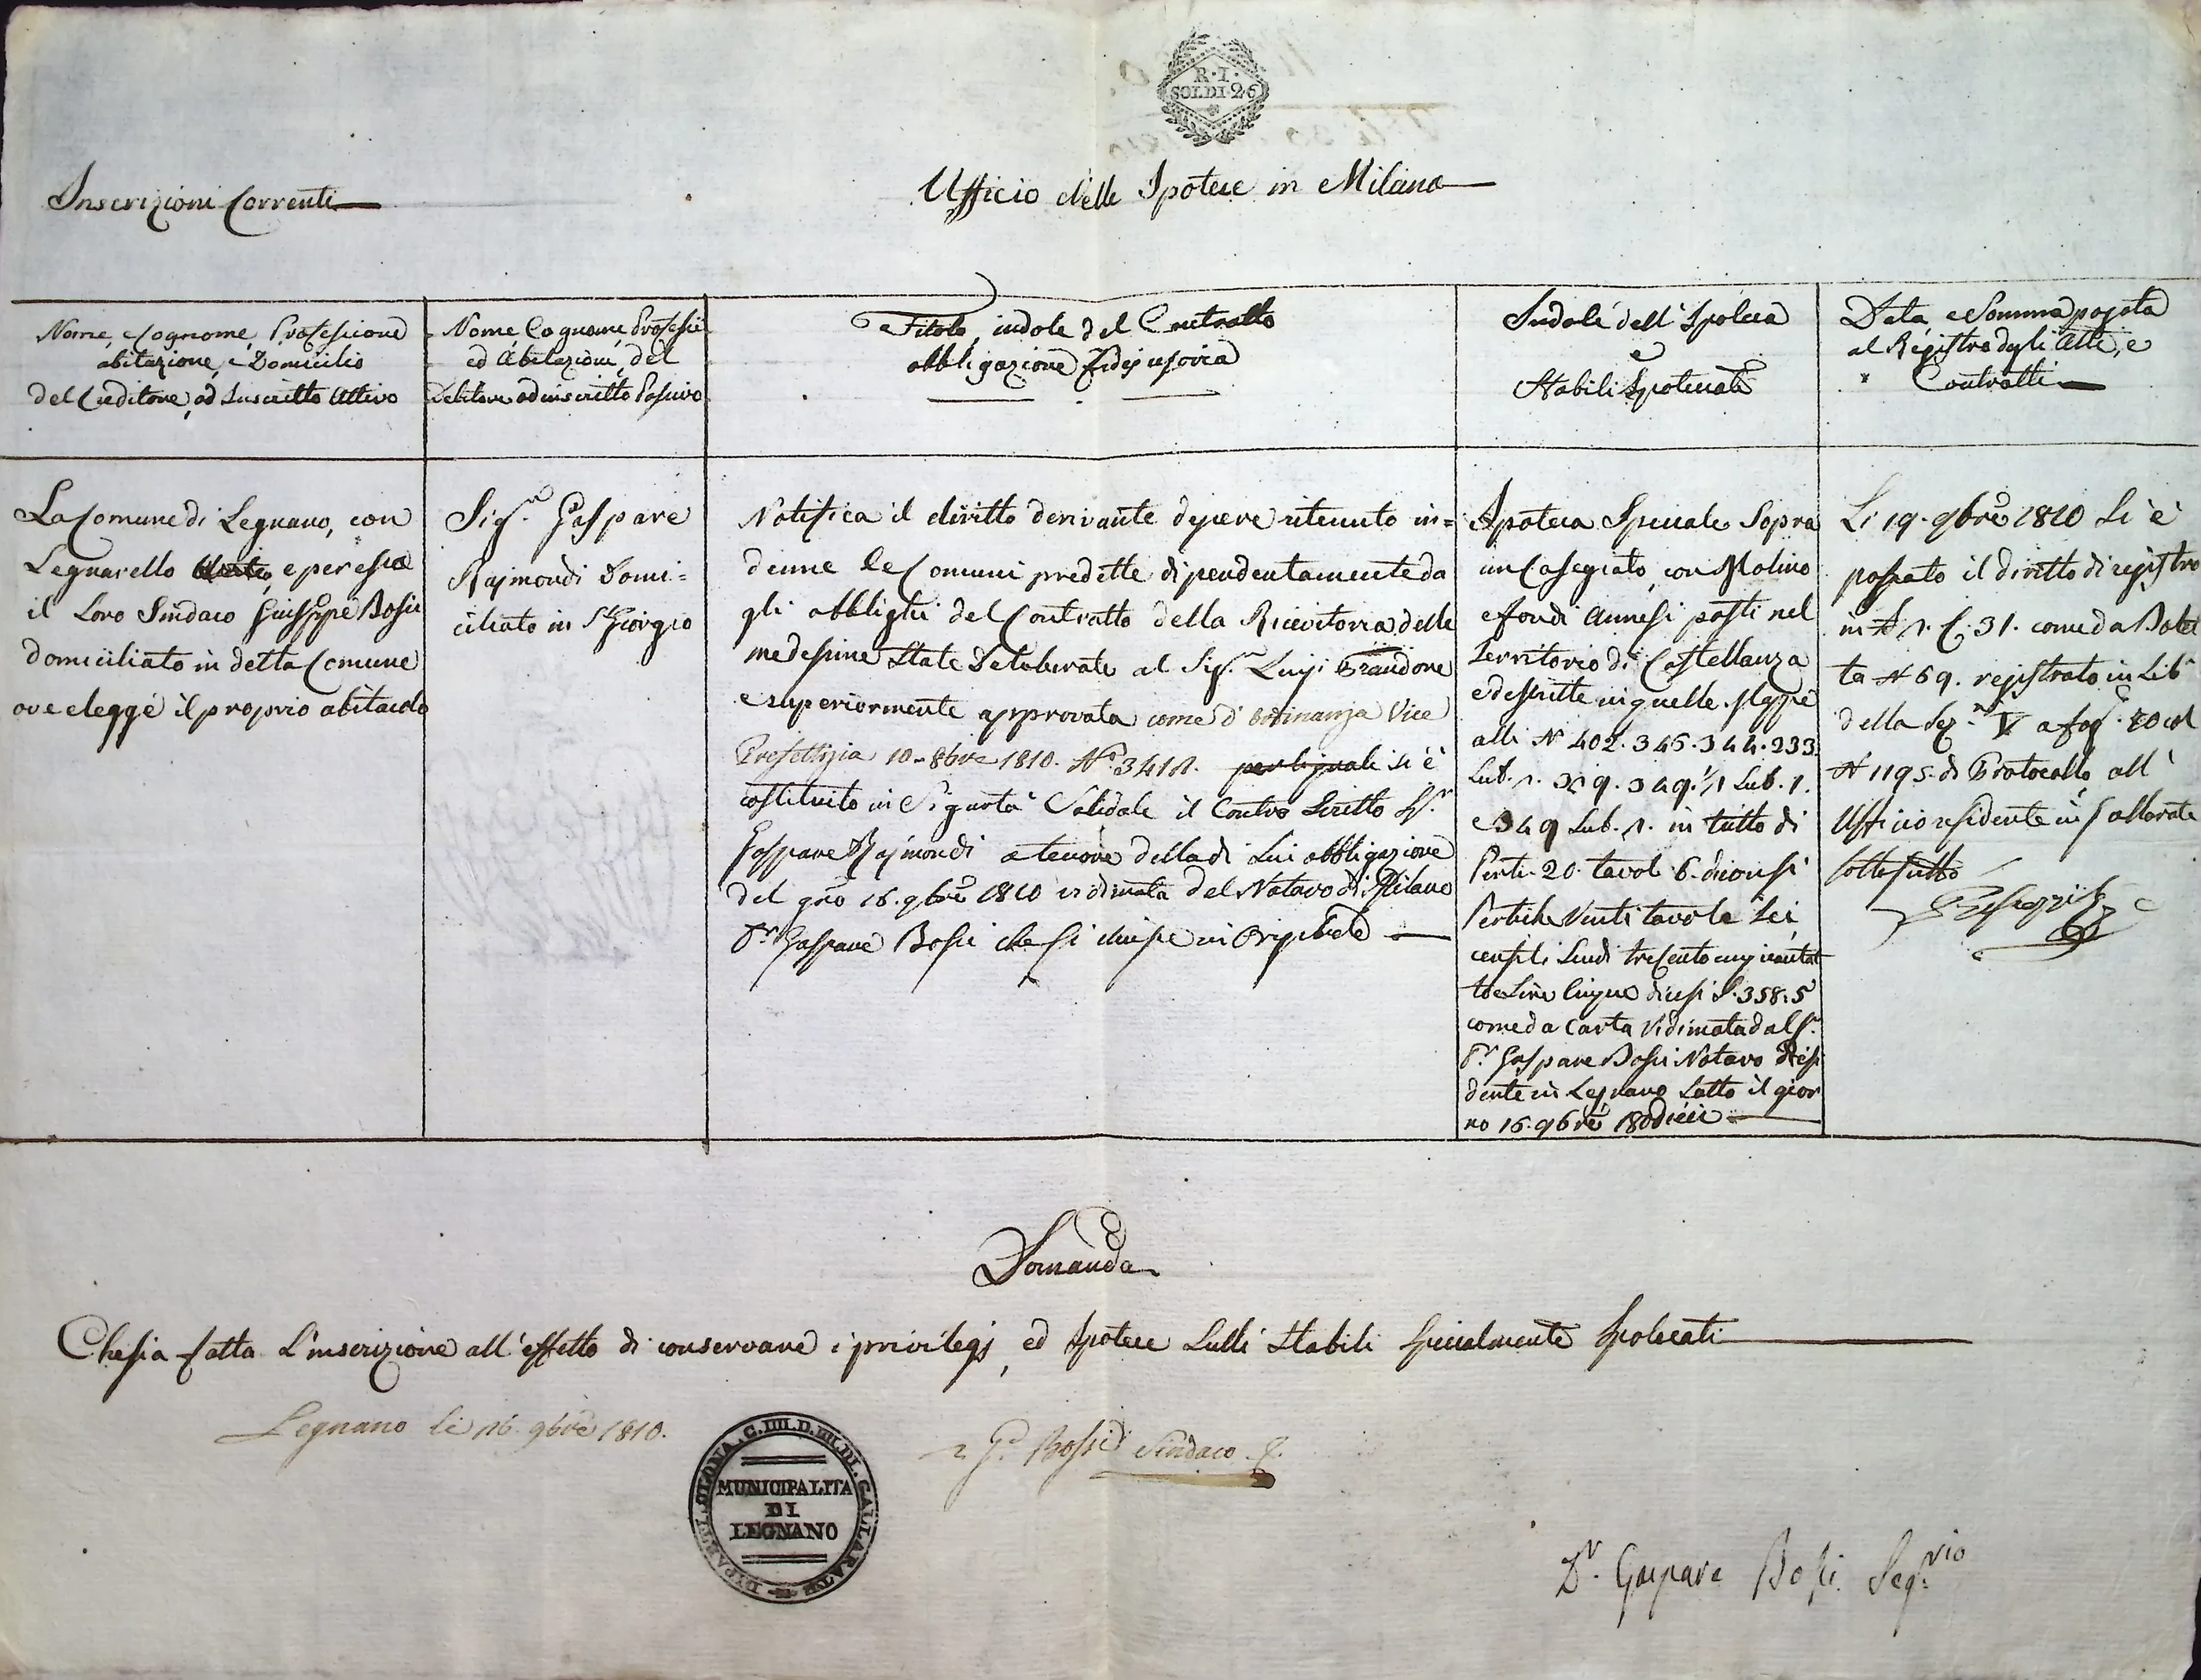 R·I·
SOLDI·26
Inscrizioni Correnti
Ufficio delle Ipotece in Milano
Nome, e Cognome, Professione
abitazione, e Domicilio
del Creditore, od Inscritto Attivo
Nome, Cognome, Professe
ed Abitazione, del
Debitore od inscritto Passivo
Titolo, indole del Contratto
obbligazione Fidejussoria
Indole dell' Ipoteca
e
Stabili Ipotecati
Data, e Somma pagata
al Registro degli Atti, e
Contratti
La Comune di Legnano, con
Legnarello e per essa
il Loro Sindaco Giuseppe Bossi
domiciliato in detta Comune
ove elegge il proprio abitacolo
Sigr. Gaspare
Rajmondi Domi=
ciliato in S. Giorgio
Notifica il diritto derivante d'essere ritenuto in=
denne le Comuni predette dipendentemente da
gli obblighi del Contratto della Ricevitoria delle
medesime State deliberate al Sigr. Luigi Brandone
e superiormente approvata come d'ordinanza Vice
Prefettizia 10. 8bre 1810. N° 3418. per li quali si è
costituito in Sigurtà Solidale il Contro Scritto Sr.
Gaspare Rajmondi a tenore della di Lui obbligazione
del gno 16. 9bre 1810 vidimata del Notaro di Milano
Dr. Gaspare Bossi che si unisce in Originale
Ipoteca Speciale Sopra
un Casegiato, con Molino
e fondi annessi posti nel
Territorio di Castellanza
e descritte in quelle Mappe
alli N° 402. 345. 344. 233
Sub. 1. 319. 349. ½ Sub. 1.
e 349 Sub. 1. in tutto di
Perti. 20. tavol. 6. diconsi
Pertiche Venti tavole Sei,
censiti Scudi trecento cinquantot
to e Lire Cinque dicesi S. 358:5
come da Carta Vidimata dal Sr.
Dr. Gaspare Bossi Notaro Resi
dente in Legnano Sotto il gior
no 16. 9bre 180dieci
Li 19. 9bre 1810 Si è
passato il diritto di registro
in L 1. C. 31. come da Bolet
ta N 69. registrato in Lib
della Sez. V a fog. 20 col
N 1195. di Protocollo, all'
Ufficio residente in Gallarate
sottoscritto
Domanda
Che sia fatta L'inscrizione all'effetto di conservare i privilegj, ed Ipotece Sulli Stabili Specialmente Ipotecati
Legnano li 16. 9bre 1810.
DIPART. OLONA. C. IIII. D. III. DI. GALLARATE
MUNICIPALITA
DI
LEGNANO
G. Bossi Sindaco
Dr. Gaspare Bossi Segrio